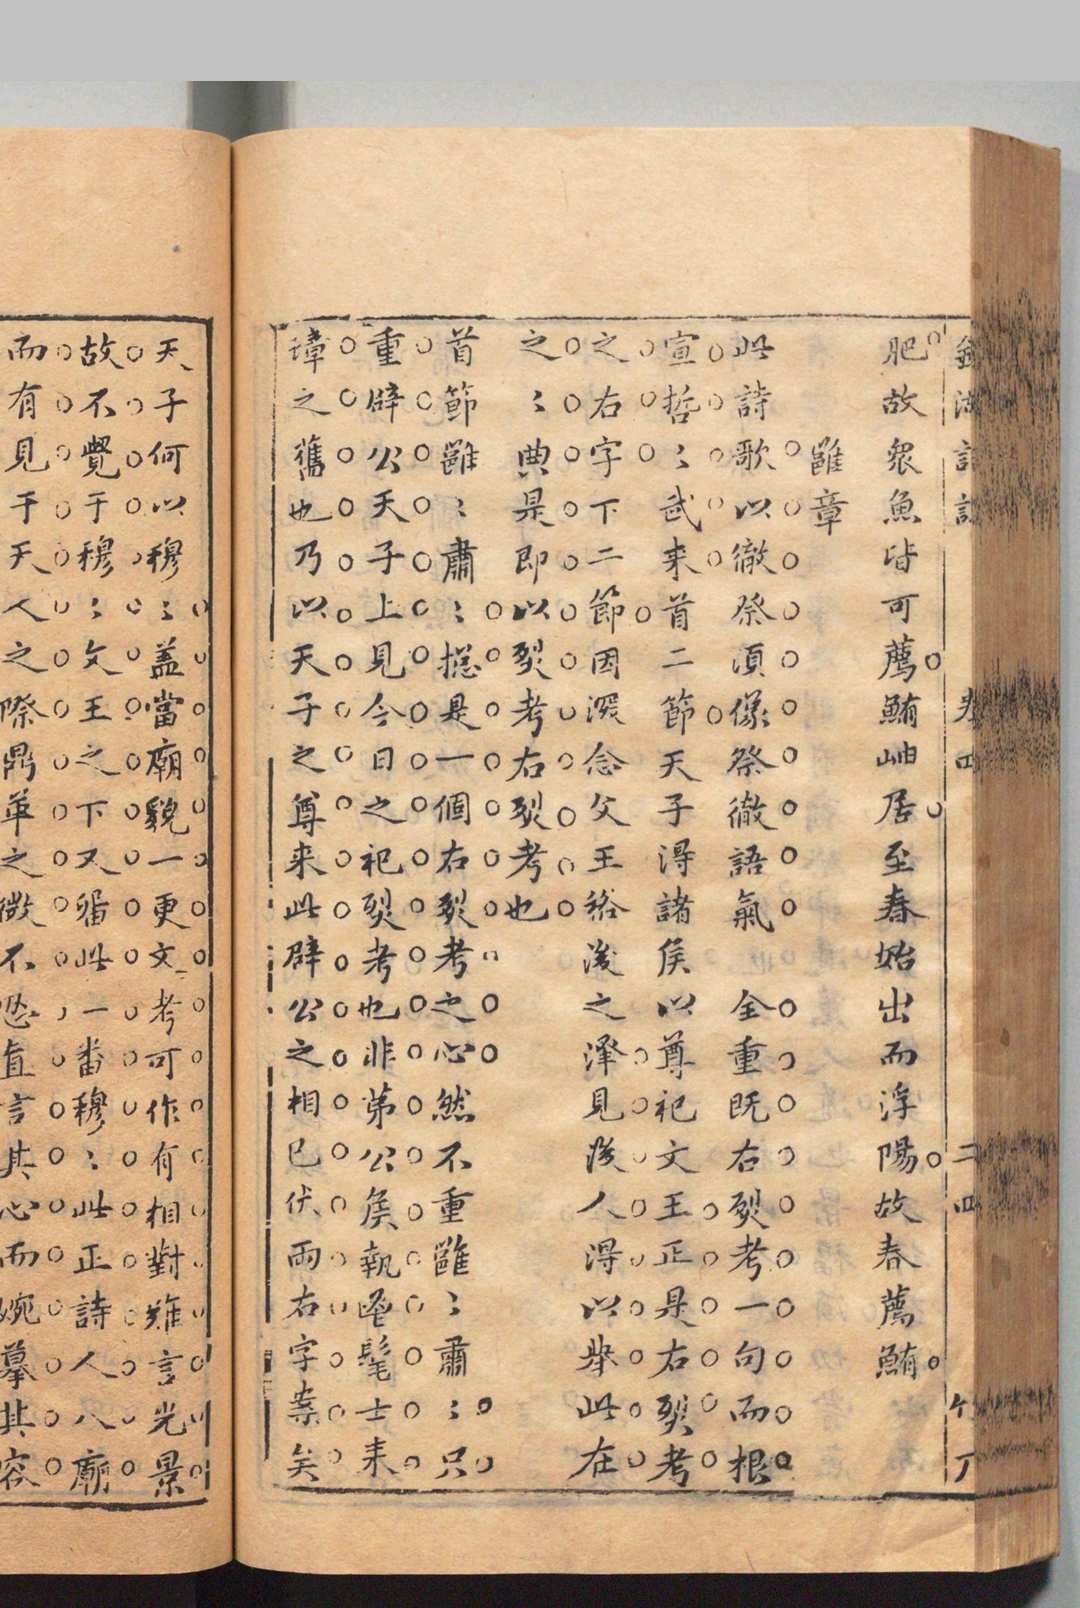 肥故眾魚皆可薦鮪岫居至春始出而浮陽故春薦鮪
雝章
此詩歌以徹祭須像祭徹語氣 全重既右烈考一句而根
宣哲〻武来首二節天子得諸侯以尊祀文王正是右烈考
之右字下二節因深念父王裕後之澤見後人得以举此在
之〻典是即以烈考右烈考也
首節雝〻肅〻摠是一個右烈考之心然不重雝〻肅〻只
重辟公天子上見今日之祀烈考也非苐公侯執邑髦士来
璋之舊也乃以天子之尊来此辟公之相已伏兩右字案矣
天子何以穆〻盖當廟貌一更文考可作有相對難言光景
故不覺于穆〻文王之下又循此一番穆〻此正詩人入廟
而有見于天人之際鼎革之微不恐直言其心而婉摹其容
卷四
二四